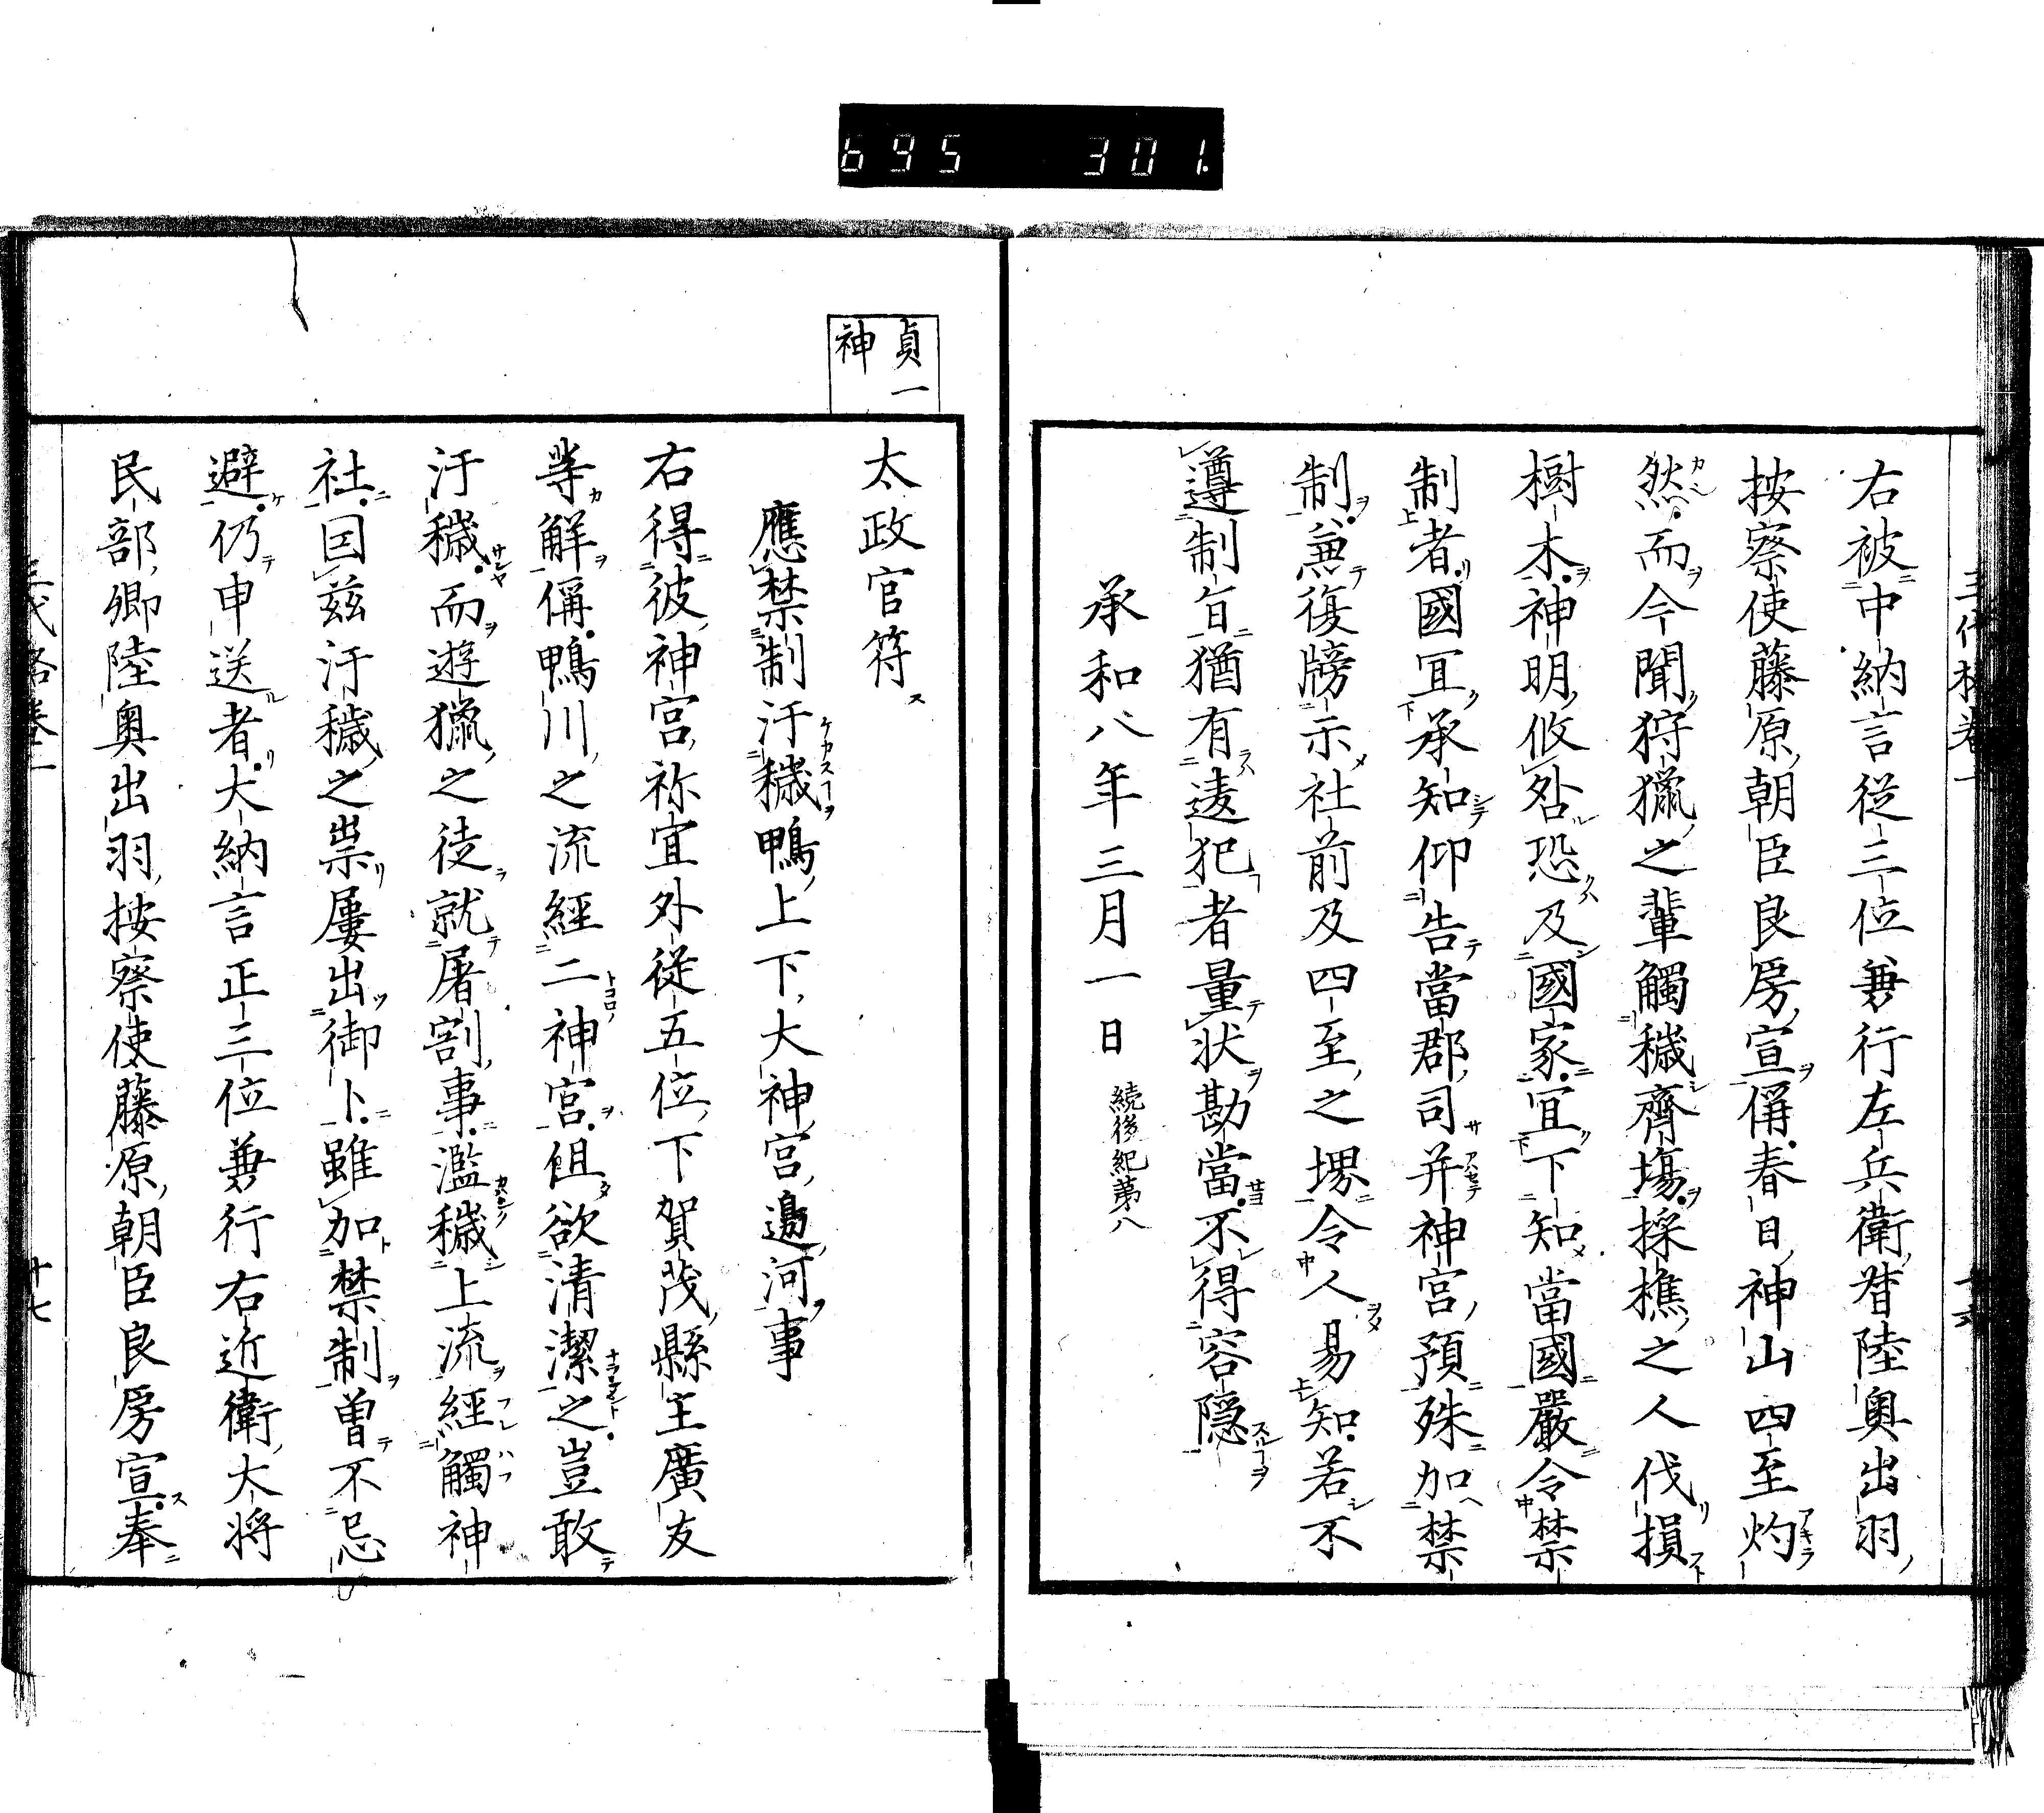 695 301
右被中納言從三位兼行左兵衛督陸奥出羽
按察使藤原朝臣良房宣偁春日神山四至灼
然而今聞狩獵之輩觸穢齊塲採樵之人伐損
樹木神明攸咎恐及國家宜下知當國嚴令禁
制者國宜承知仰告當郡司并神宮預殊加禁
制兼復牓示社前及四至之堺令人易知若不
遵制旨猶有違犯者量状勘當不得容隠
承和八年三月一日 続後紀第八
貞一
神
太政官符
應禁制汙穢鴨上下大神宮邊河事
右得彼神宮祢宜外從五位下賀茂縣主廣友
等解偁鴨川之流經二神宮但欲清潔之豈敢
汙穢而遊獵之徒就屠割事濫穢上流經觸神
社因茲汙穢之祟屢出御卜雖加禁制曽不忌
避仍申送者大納言正三位兼行右近衛大将
民部卿陸奥出羽按察使藤原朝臣良房宣奉
十七